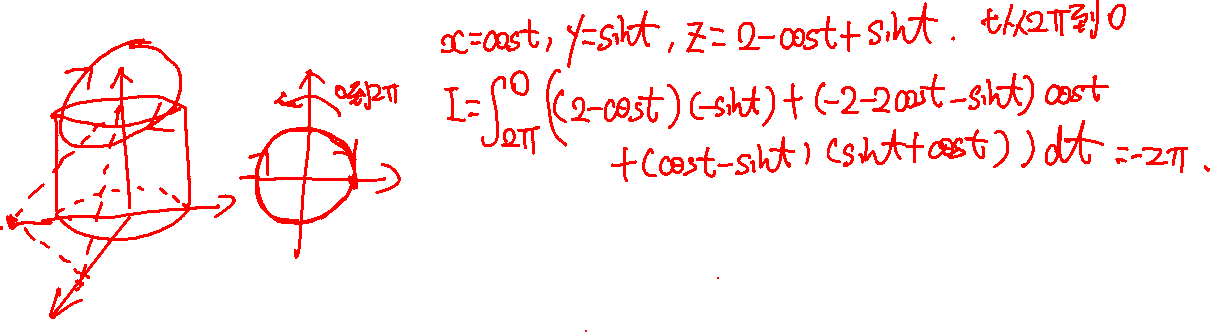 x=cost, y=sint, z=2-cost+sint. t从2π到0
0到2π
I=∫_{2π}^{0} ((2-cost)(-sint)+(-2-2cost-sint)cost
+(cost-sint)(sint+cost))dt =-2π.